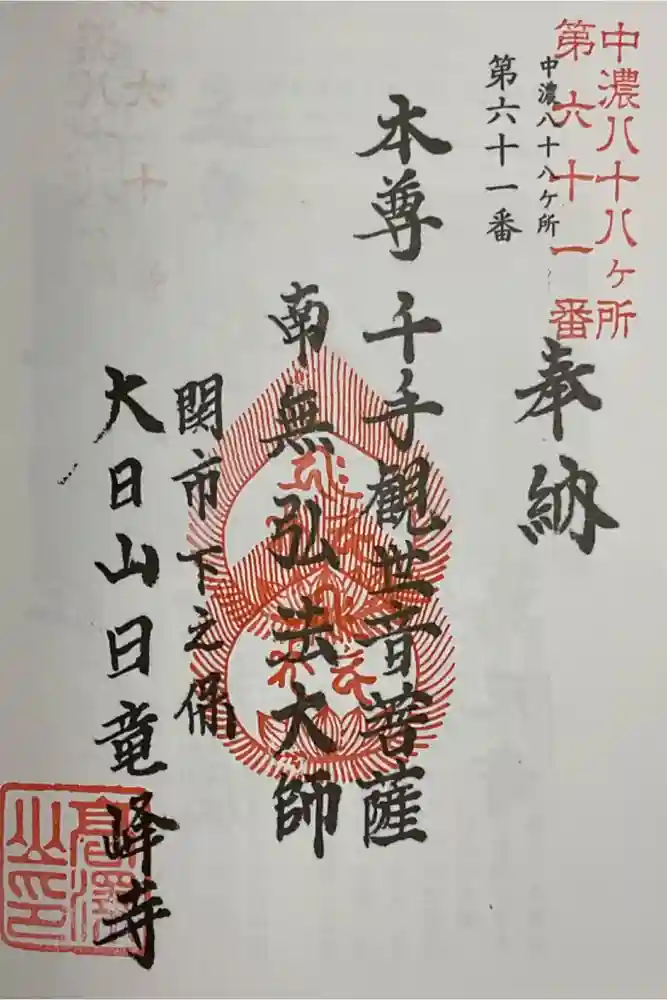 中濃八十八ヶ所
第六十一番
中濃八十八ヶ所
第六十一番
奉納
本尊 千手観世音菩薩
南無弘法大師
関市下之保
大日山日竜峰寺
高澤
山印